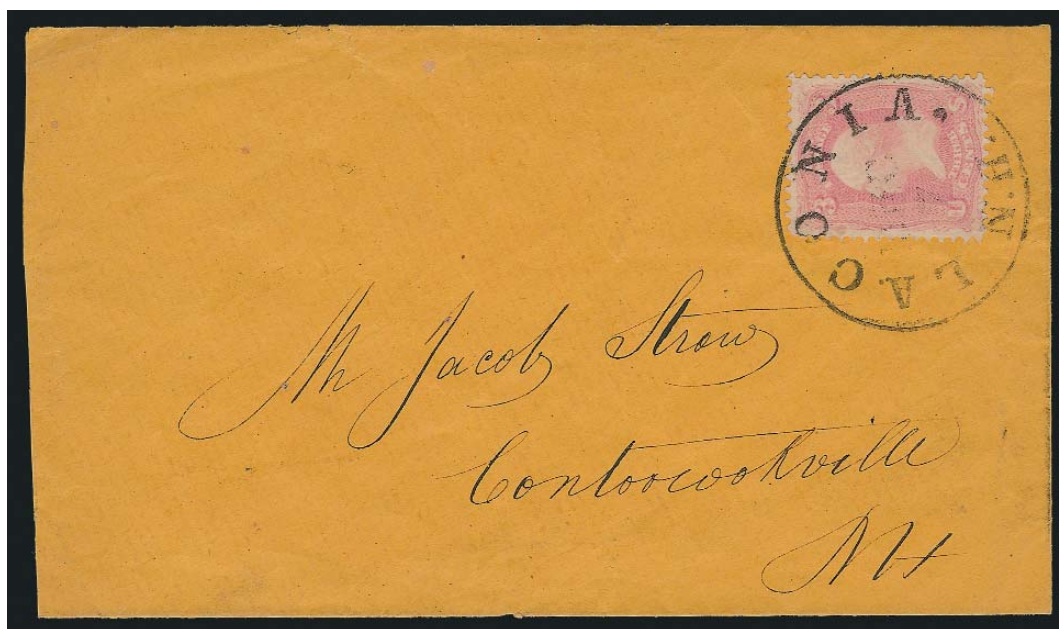 LACONIA. N.H.
U S 3
Mr Jacob Straw
Contoocookville
NH